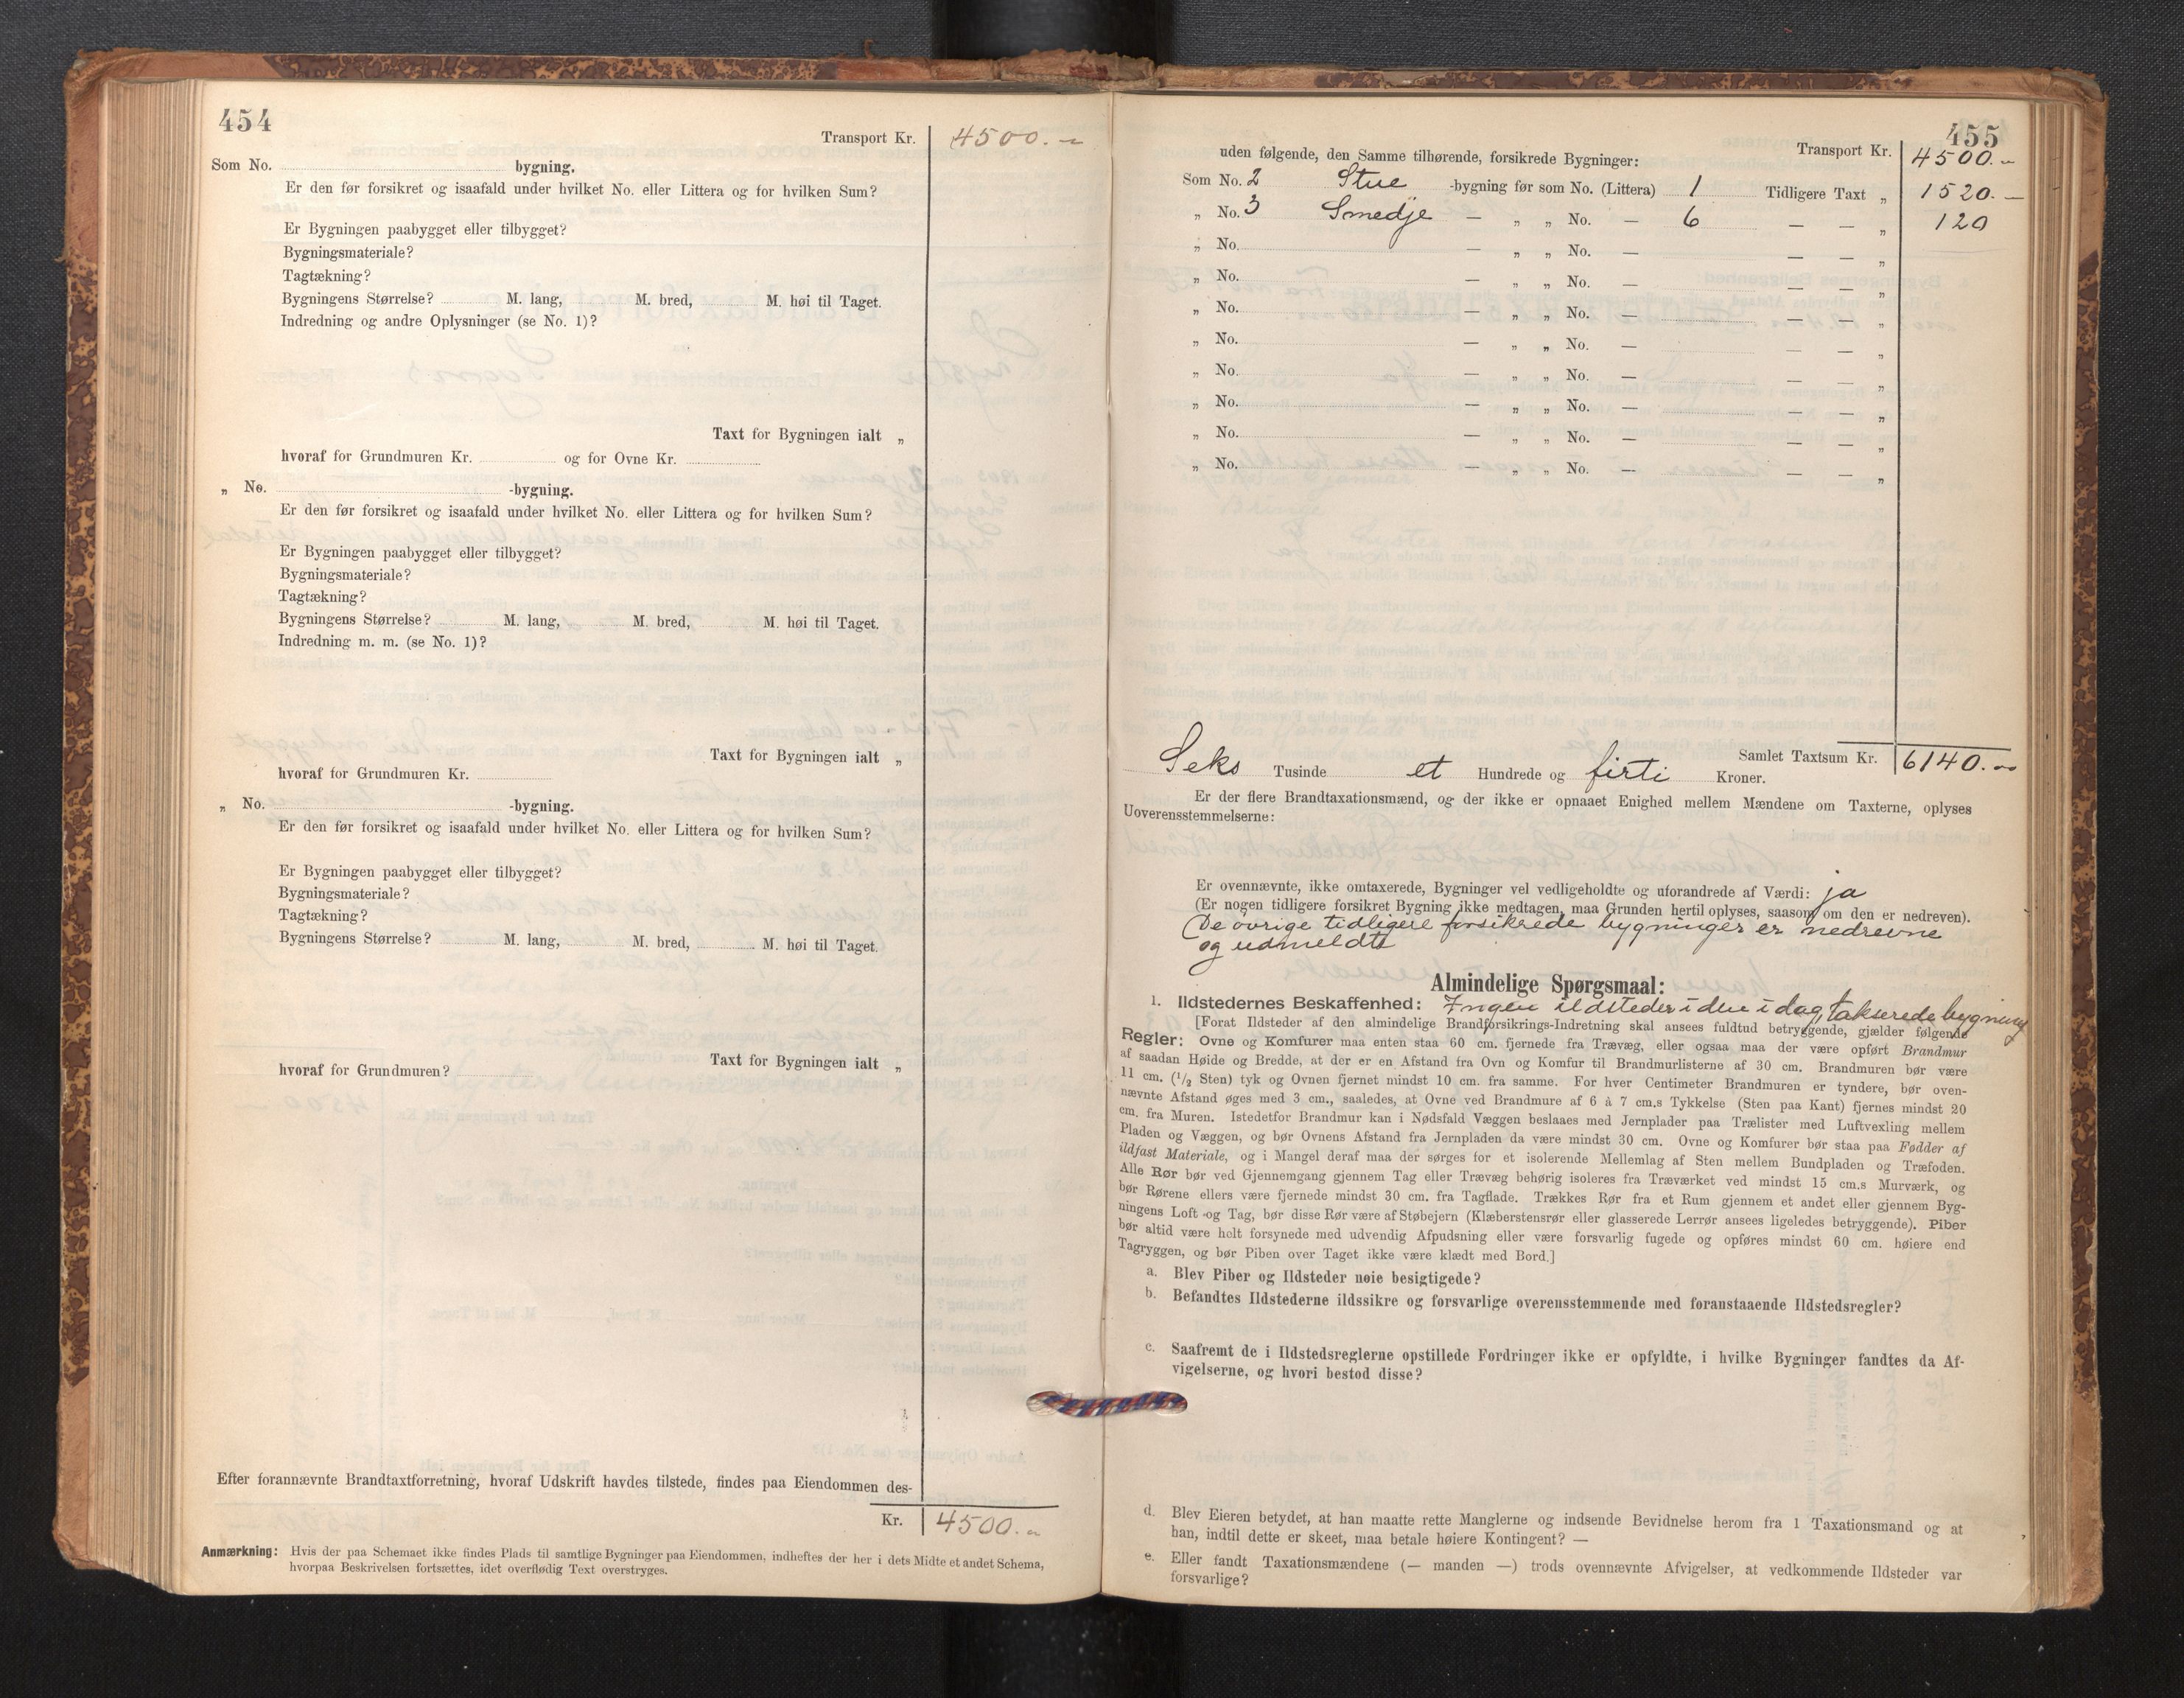 454
Transport Kr. 4500.-
Som No. bygning.
Er den før forsikret og isaafald under hvilket No. eller Littera og for hvilken Sum?
Er Bygningen paabygget eller tilbygget?
Bygningsmateriale?
Tagtækning?
Bygningens Størrelse? M. lang, M. bred, M. høi til Taget.
Indredning og andre Oplysninger (se No. 1)?
Taxt for Bygningen ialt „
hvoraf for Grundmuren Kr. og for Ovne Kr.
„ No. -bygning.
Er den før forsikret og isaafald under hvilket No. eller Littera og for hvilken Sum?
Er Bygningen paabygget eller tilbygget?
Bygningsmateriale?
Tagtækning?
Bygningens Størrelse? M. lang, M. bred, M. høi til Taget.
Indredning m. m. (se No. 1)?
Taxt for Bygningen ialt „
hvoraf for Grundmuren Kr.
„ No. -bygning.
Er den før forsikret og isaafald under hvilket No. eller Littera og for hvilken Sum?
Er Bygningen paabygget eller tilbygget?
Bygningsmateriale?
Tagtækning?
Bygningens Størrelse? M. lang, M. bred, M. høi til Taget.
Taxt for Bygningen ialt „
hvoraf for Grundmuren?
Efter forannævnte Brandtaxtforretning, hvoraf Udskrift havdes tilstede, findes paa Eiendommen des-
Kr. 4500.-
Anmærkning: Hvis der paa Schemaet ikke findes Plads til samtlige Bygninger paa Eiendommen, indheftes der her i dets Midte et andet Schema,
hvorpaa Beskrivelsen fortsættes, idet overflødig Text overstryges.
455
uden følgende, den Samme tilhørende, forsikrede Bygninger: Transport Kr. 4500.-
Som No. 2 Stue -bygning før som No. (Littera) 1 Tidligere Taxt „ 1520.-
„ No. 3 Smedje — „ „ No. — 6 — — „ 120
„ No. — „ „ No. — — — „
„ No. — „ „ No. — — — „
„ No. — „ „ No. — — — „
„ No. — „ „ No. — — — „
„ No. — „ „ No. — — — „
„ No. — „ „ No. — — — „
„ No. — „ „ No. — — — „
„ No. — „ „ No. — — — „
Samlet Taxtsum Kr. 6140.-
Seks Tusinde et Hundrede og firti Kroner.
Er der flere Brandtaxationsmænd, og der ikke er opnaaet Enighed mellem Mændene om Taxterne, oplyses
Uoverensstemmelserne:
Er ovennævnte, ikke omtaxerede, Bygninger vel vedligeholdte og uforandrede af Værdi: ja
(Er nogen tidligere forsikret Bygning ikke medtagen, maa Grunden hertil oplyses, saasom om den er nedreven).
De øvrige tidligere forsikrede bygninger er nedrevne
og udmeldte
Almindelige Spørgsmaal:
1. Ildstedernes Beskaffenhed: Ingen ildsteder i den i dag takserede bygning
[Forat Ildsteder af den almindelige Brandforsikrings-Indretning skal ansees fuldtud betryggende, gjælder følgende
Regler: Ovne og Komfurer maa enten staa 60 cm. fjernede fra Trævæg, eller ogsaa maa der være opført Brandmur
af saadan Høide og Bredde, at der er en Afstand fra Ovn og Komfur til Brandmurlisterne af 30 cm. Brandmuren bør være
11 cm. (1/2 Sten) tyk og Ovnen fjernet mindst 10 cm. fra samme. For hver Centimeter Brandmuren er tyndere, bør oven-
nævnte Afstand øges med 3 cm., saaledes, at Ovne ved Brandmure af 6 à 7 cm.s Tykkelse (Sten paa Kant) fjernes mindst 20
cm. fra Muren. Istedetfor Brandmur kan i Nødsfald Væggen beslaaes med Jernplader paa Trælister med Luftvexling mellem
Pladen og Væggen, og bør Ovnens Afstand fra Jernpladen da være mindst 30 cm. Ovne og Komfurer bør staa paa Fødder af
ildfast Materiale, og i Mangel deraf maa der sørges for et isolerende Mellemlag af Sten mellem Bundpladen og Træfoden.
Alle Rør bør ved Gjennemgang gjennem Tag eller Trævæg behørig isoleres fra Træværket ved mindst 15 cm.s Murværk, og
bør Rørene ellers være fjernede mindst 30 cm. fra Tagflade. Trækkes Rør fra et Rum gjennem et andet eller gjennem Byg-
ningens Loft og Tag, bør disse Rør være af Støbejern (Klæberstensrør eller glasserede Lerrør ansees ligeledes betryggende). Piber
bør altid være helt forsynede med udvendig Afpudsning eller være forsvarlig fugede og opføres mindst 60 cm. høiere end
Tagryggen, og bør Piben over Taget ikke være klædt med Bord.]
a. Blev Piber og Ildsteder nøie besigtigede?
b. Befandtes Ildstederne ildssikre og forsvarlige overensstemmende med foranstaaende Ildstedsregler?
c. Saafremt de i Ildstedsreglerne opstillede Fordringer ikke er opfyldte, i hvilke Bygninger fandtes da Af-
vigelserne, og hvori bestod disse?
d. Blev Eieren betydet, at han maatte rette Manglerne og indsende Bevidnelse herom fra 1 Taxationsmand og at
han, indtil dette er skeet, maa betale høiere Kontingent? —
e. Eller fandt Taxationsmændene (— manden —) trods ovennævnte Afvigelser, at vedkommende Ildsteder var
forsvarlige?